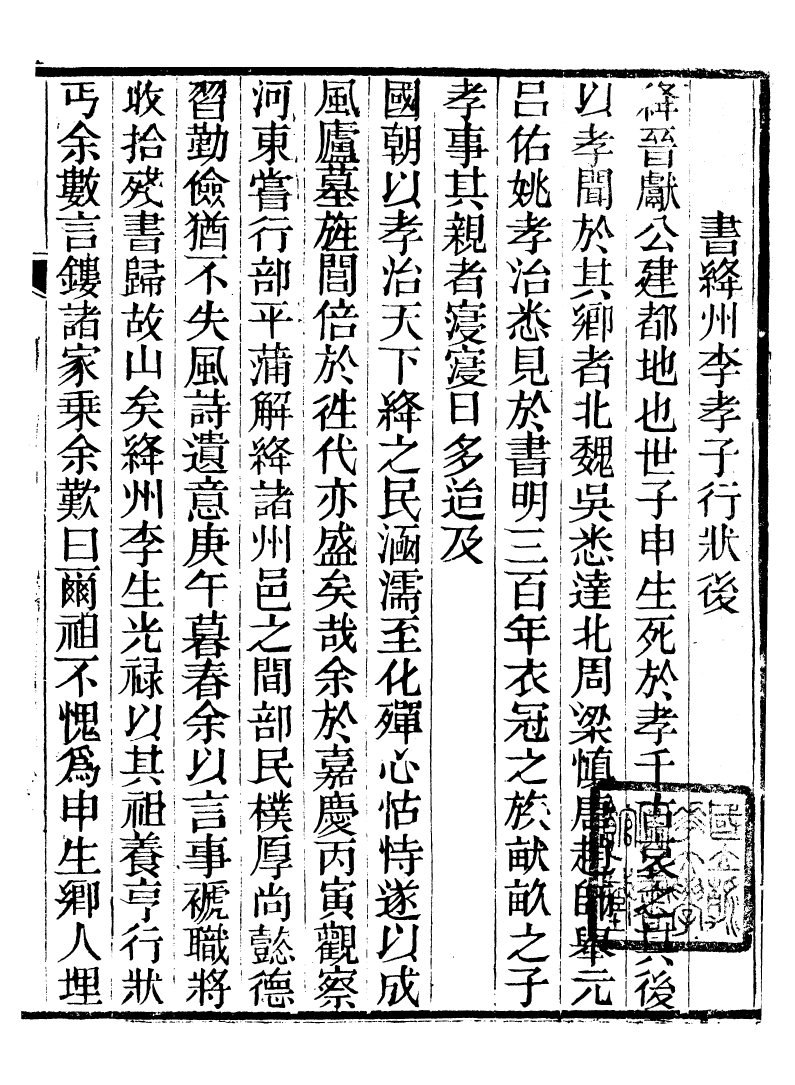 書絳州李孝子行狀後
絳晉獻公建都地也世子申生死於孝千古哀之其後
以孝聞於其鄉者北魏吳悉達北周梁慎唐趙師舉元
呂佑姚孝治悉見於書明三百年衣冠之族畎畝之子
孝事其親者寖寖日多迨及
國朝以孝治天下絳之民涵濡至化殫心怙恃遂以成
風廬墓旌閭倍於徃代亦盛矣哉余於嘉慶丙寅觀察
河東嘗行部平蒲解絳諸州邑之間部民樸厚尚懿德
習勤儉猶不失風詩遺意庚午暮春余以言事褫職將
收拾殘書歸故山矣絳州李生光祿以其祖養亨行狀
丐余數言鏤諸家乘余歎曰爾祖不愧爲申生鄉人埋